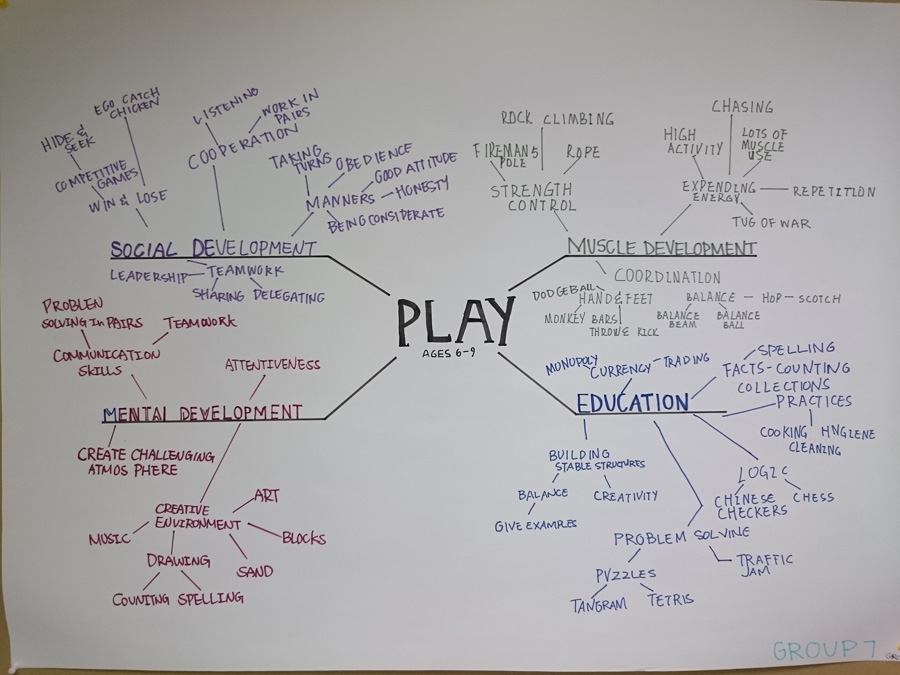 PLAY
AGES 6-9
SOCIAL DEVELOPMENT
HIDE &
SEEK
COMPETITIVE
GAMES
EGO CATCH
CHICKEN
WIN & LOSE
LISTENING
WORK IN
PAIRS
COOPERATION
TAKING
TURNS
OBEDIENCE
GOOD ATTITUDE
MANNERS
HONESTY
BEING CONSIDERATE
LEADERSHIP
TEAMWORK
SHARING
DELEGATING
MUSCLE DEVELOPMENT
ROCK CLIMBING
FIREMANS
POLE
ROPE
STRENGTH
CONTROL
CHASING
HIGH
ACTIVITY
LOTS OF
MUSCLE
USE
EXPENDING
ENERGY
REPETITION
TUG OF WAR
COORDINATION
DODGEBALL
HAND & FEET
MONKEY BARS
THROW & KICK
BALANCE
HOP-SCOTCH
BALANCE
BEAM
BALANCE
BALL
MENTAL DEVELOPMENT
PROBLEN
SOLVING In PAIRS
TEAMWORK
COMMUNICATION
SKILLS
ATTENTIVENESS
CREATE CHALLENGING
ATMOS PHERE
CREATIVE
ENVIRONMENT
ART
MUSIC
BLOCKS
DRAWING
SAND
COUNITNG
SPELLING
EDUCATION
MONOPOLY
CURRENCY
TRADING
SPELLING
FACTS-COUNTING
COLLECTIONS
PRACTICES
COOKING
HYGIENE
CLEANING
BUILDING
STABLE STRUCTURES
BALANCE
CREATIVITY
GIVE EXAMPLES
LOGIC
CHINESE
CHECKERS
CHESS
PROBLEM SOLVING
TRAFFIC
JAM
PUZZLES
TANGRAM
TETRIS
GROUP 7